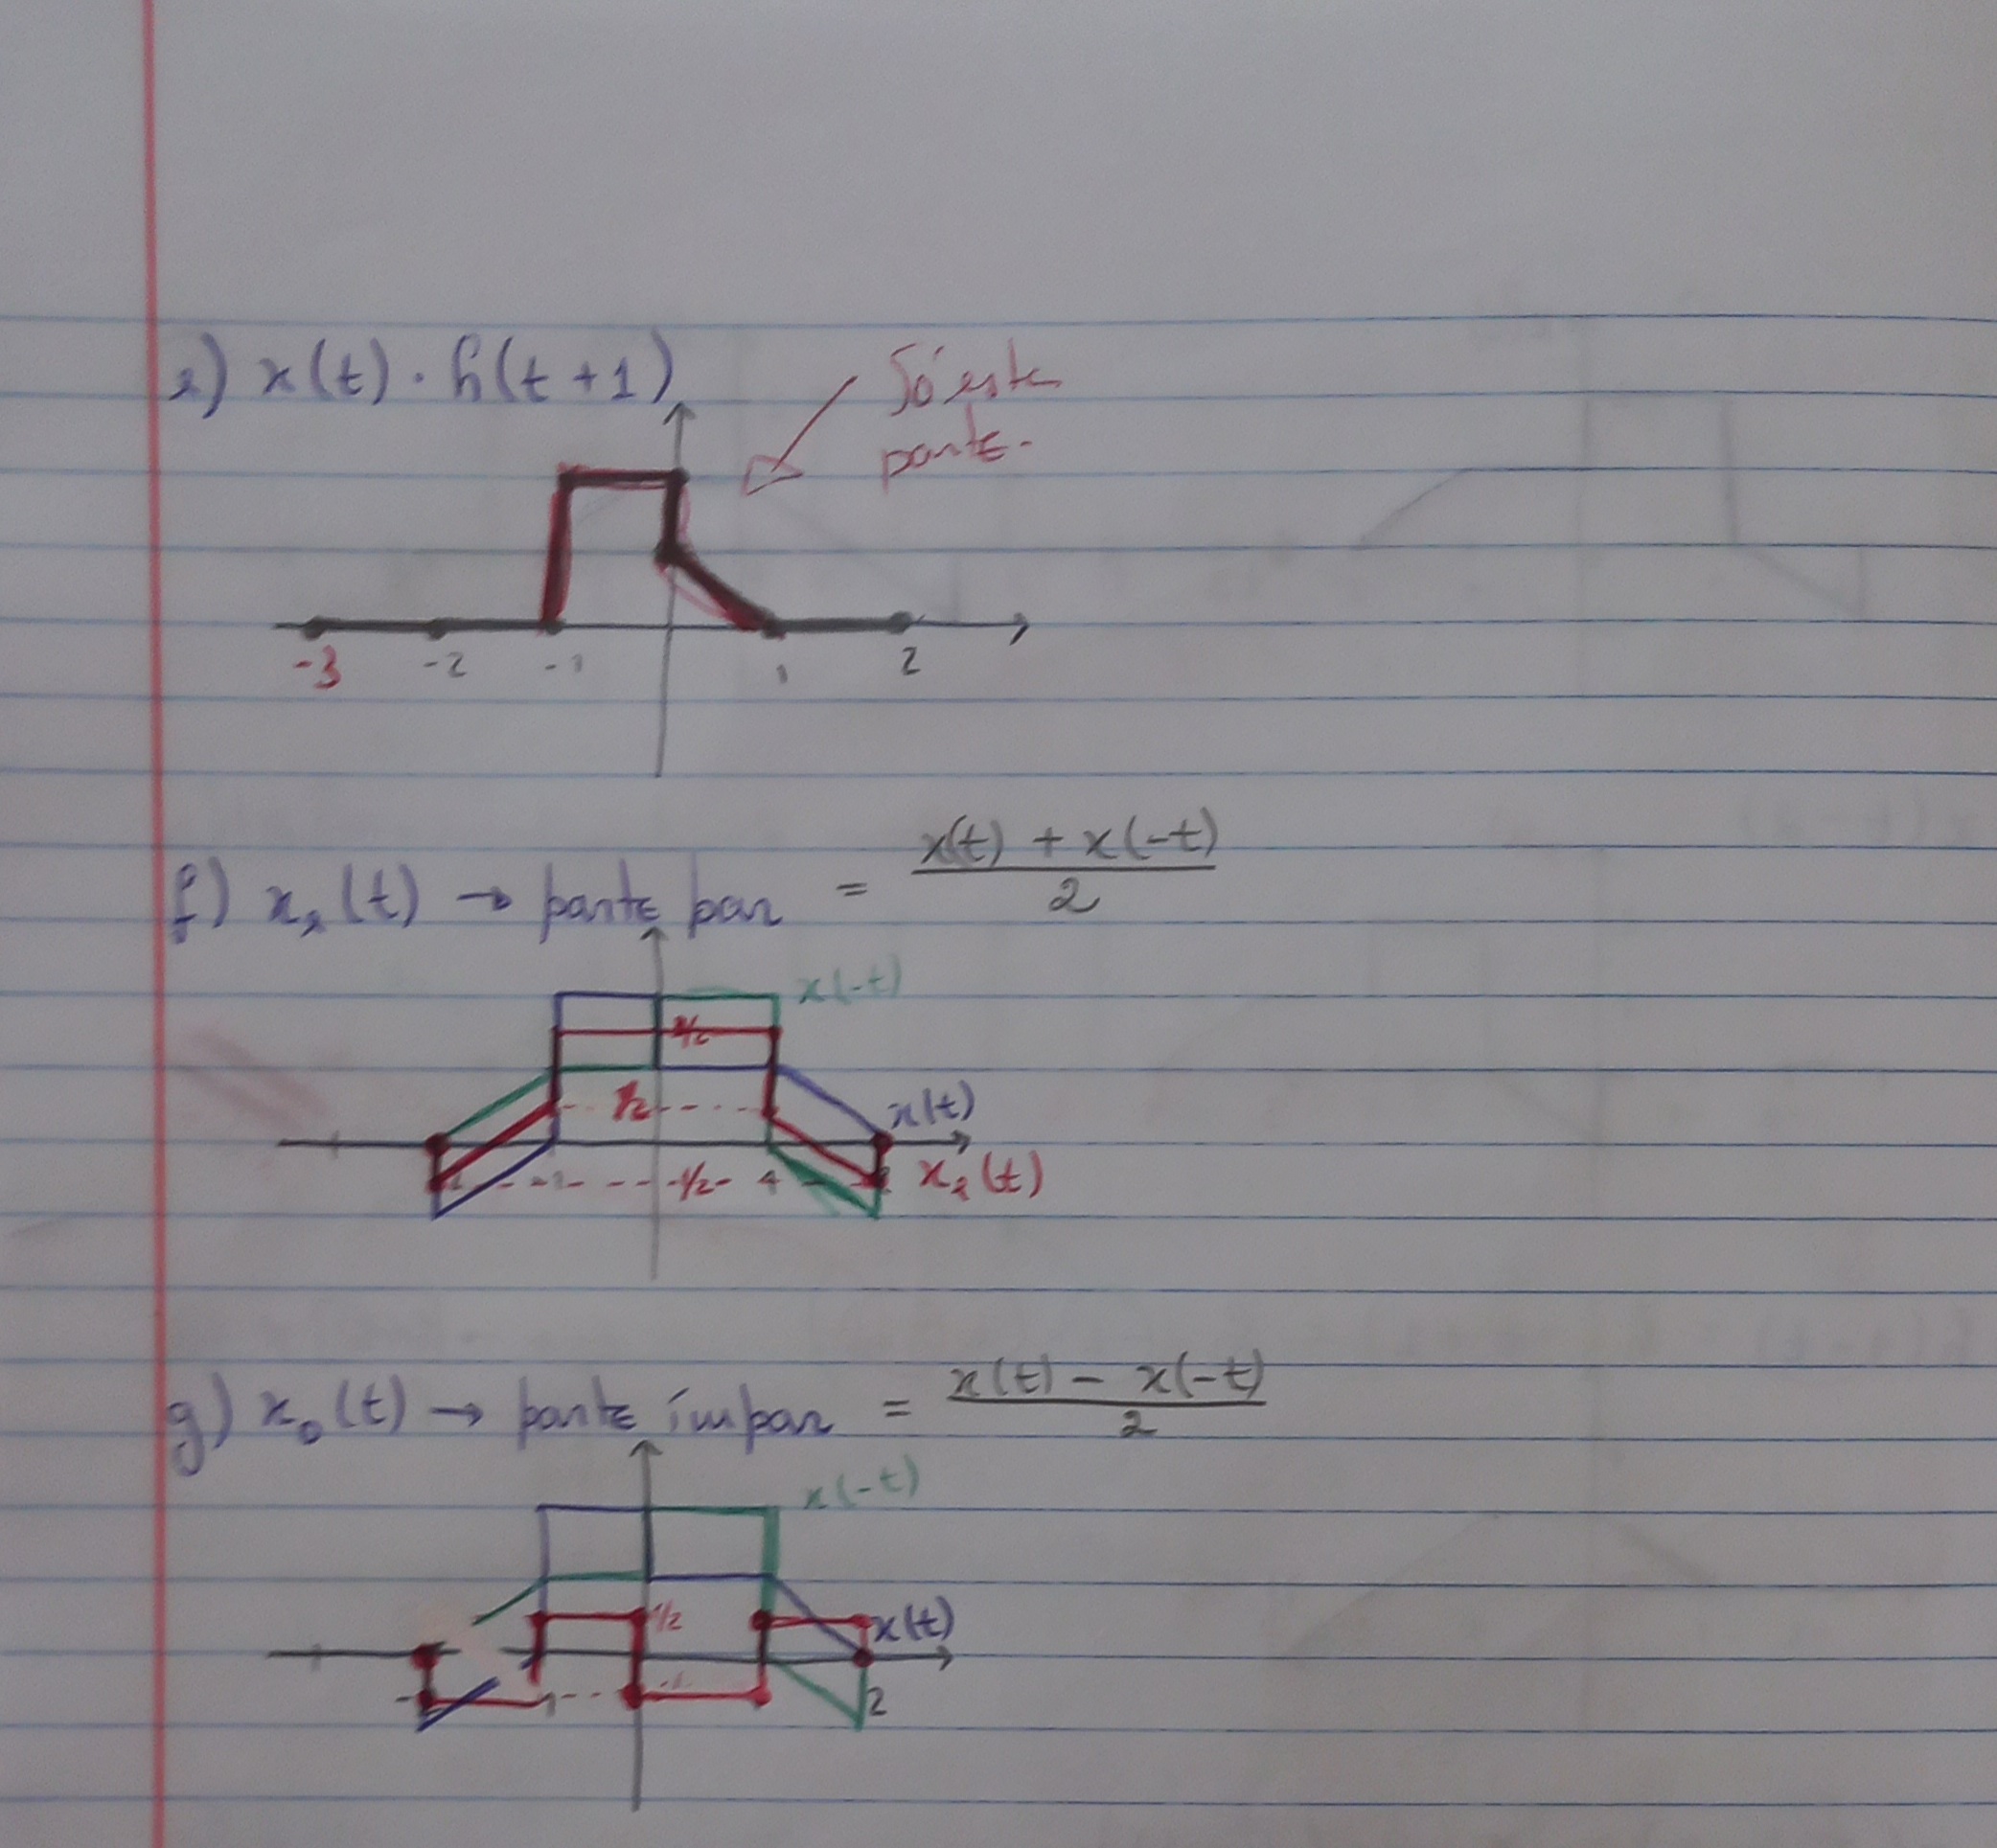 e) x(t) · h(t+1)
Só esta
parte.
-3 -2 -1 1 2
f) xe(t) → parte par = x(t) + x(-t) / 2
x(-t)
3/2
1/2
x(t)
-1/2
xe(t)
g) xo(t) → parte ímpar = x(t) - x(-t) / 2
x(-t)
1/2
x(t)
2